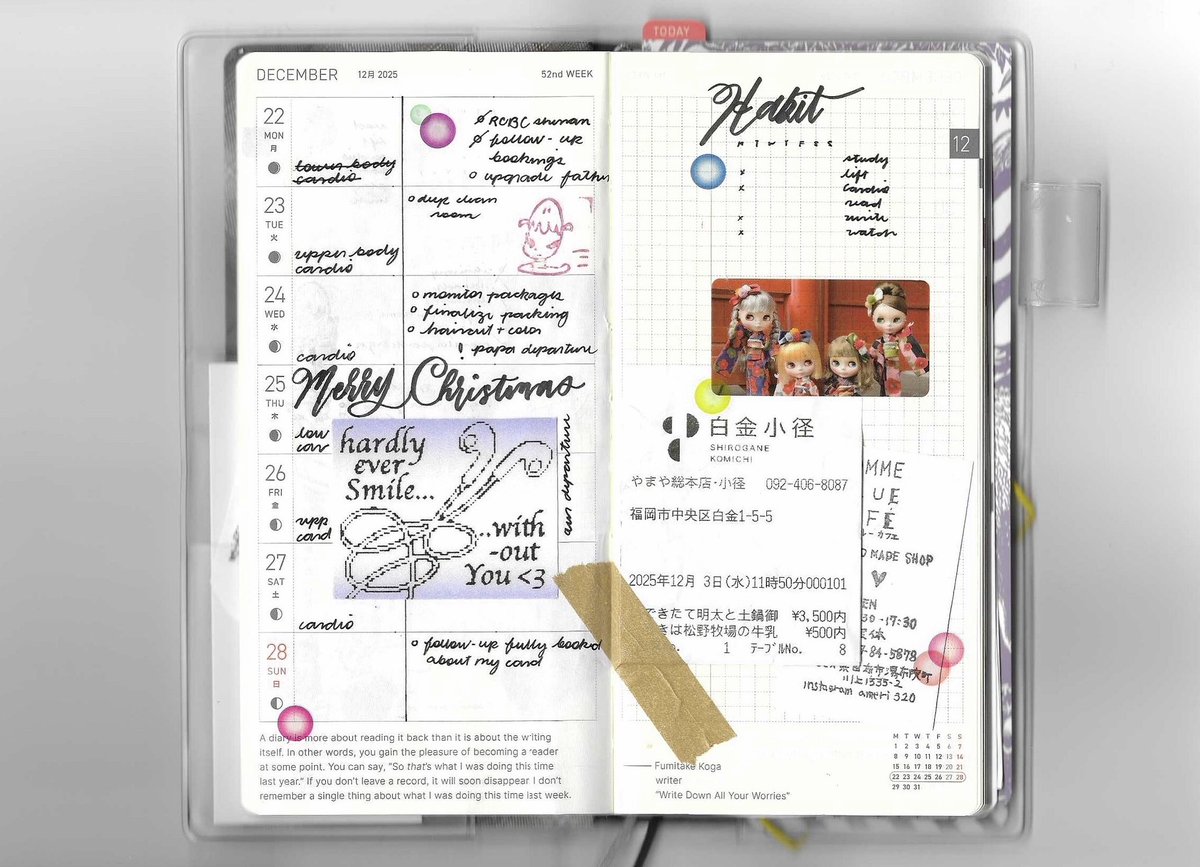 TODAY
DECEMBER 12月 2025
52nd WEEK
22
MON
月
lower body
cardio
ø RCBC
ø follow-up
bookings
o upgrade
23
TUE
火
upper body
cardio
o deep clean
room
24
WED
水
cardio
o monitor packages
o finalize packing
o haircut + color
! papa departure
25
THU
木
Merry Christmas
low
car
hardly
ever
Smile...
...with
-out
You <3
departure
26
FRI
金
upp
card
27
SAT
土
cardio
28
SUN
日
o follow-up fully booked
about my card
A diary is more about reading it back than it is about the writing
itself. In other words, you gain the pleasure of becoming a reader
at some point. You can say, "So that's what I was doing this time
last year." If you don't leave a record, it will soon disappear I don't
remember a single thing about what I was doing this time last week.
Habit
M T W T F S S
12
study
x lift
x cardio
read
x write
x watch
白金小径
SHIROGANE
KOMICHI
やまや総本店・小径 092-406-8087
福岡市中央区白金1-5-5
2025年12月 3日(水)11時50分000101
できたて明太と土鍋御 ¥3,500内
きは松野牧場の牛乳 ¥500内
1 テーブルNo. 8
MME
UE
FÉ
ーカフェ
MADE SHOP
♡
EN
30-17:30
定休
7-84-5878
川上1535-2
Instagram ameri 520
Fumitake Koga
writer
"Write Down All Your Worries"
M T W T F S S
1 2 3 4 5 6 7
8 9 10 11 12 13 14
15 16 17 18 19 20 21
22 23 24 25 26 27 28
29 30 31